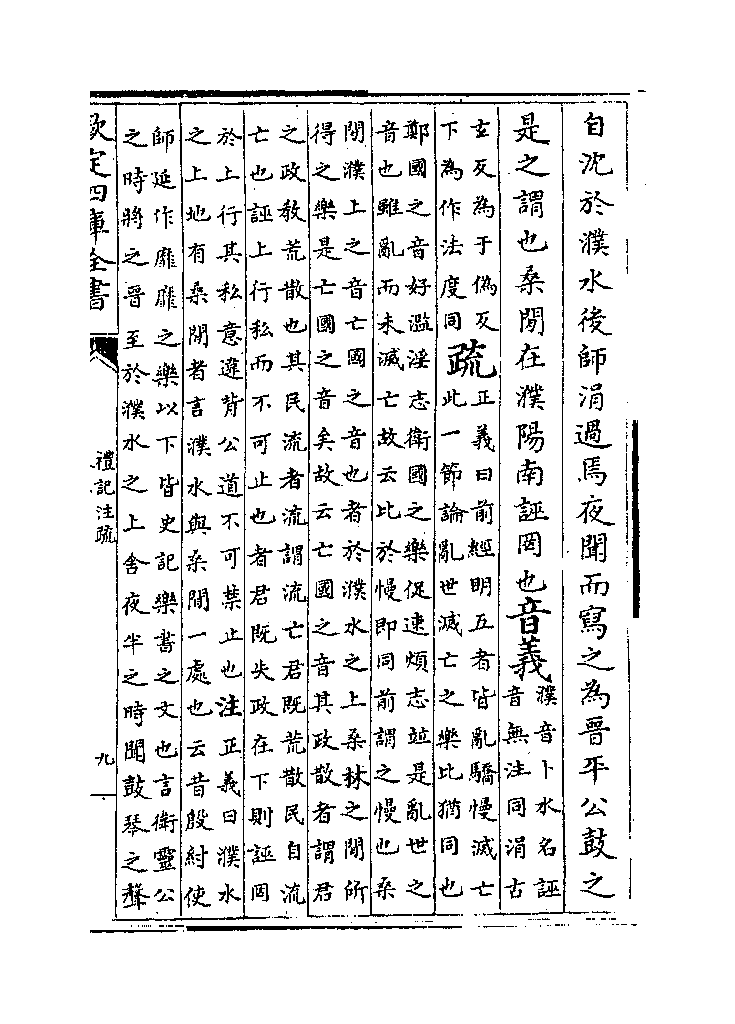 自沈於濮水後師涓過焉夜聞而寫之為晉平公鼓之
是之謂也桑間在濮陽南誣罔也音義
濮音卜水名誣
音無注同涓古
玄反為于偽反
下為作法度同
疏
正義曰前經明五者皆亂驕慢滅亡
此一節論亂世滅亡之樂比猶同也
鄭國之音好濫淫志衛國之樂促速煩志並是亂世之
音也雖亂而未滅亡故云比於慢即同前謂之慢也桑
間濮上之音亡國之音也者於濮水之上桑林之間所
得之樂是亡國之音矣故云亡國之音其政散者謂君
之政教荒散也其民流者流謂流亡君既荒散民自流
亡也誣上行私而不可止也者君既失政在下則誣罔
於上行其私意違背公道不可禁止也注正義曰濮水
之上地有桑間者言濮水與桑間一處也云昔殷紂使
師延作靡靡之樂以下皆史記樂書之文也言衛靈公
之時將之晉至於濮水之上舍夜半之時聞鼓琴之聲
欽定四庫全書
禮記注疏
九